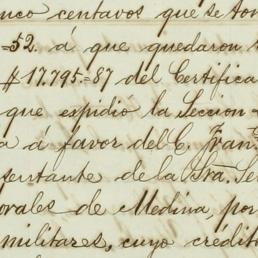 nco centavos que se ton
-52. á que quedaron
$17.795.-87 del Certifica
que espidió la Seccion
a á favor del C. Fran
sentante de la Sra. Se
orales de Medina, por
militares, cuyo credito